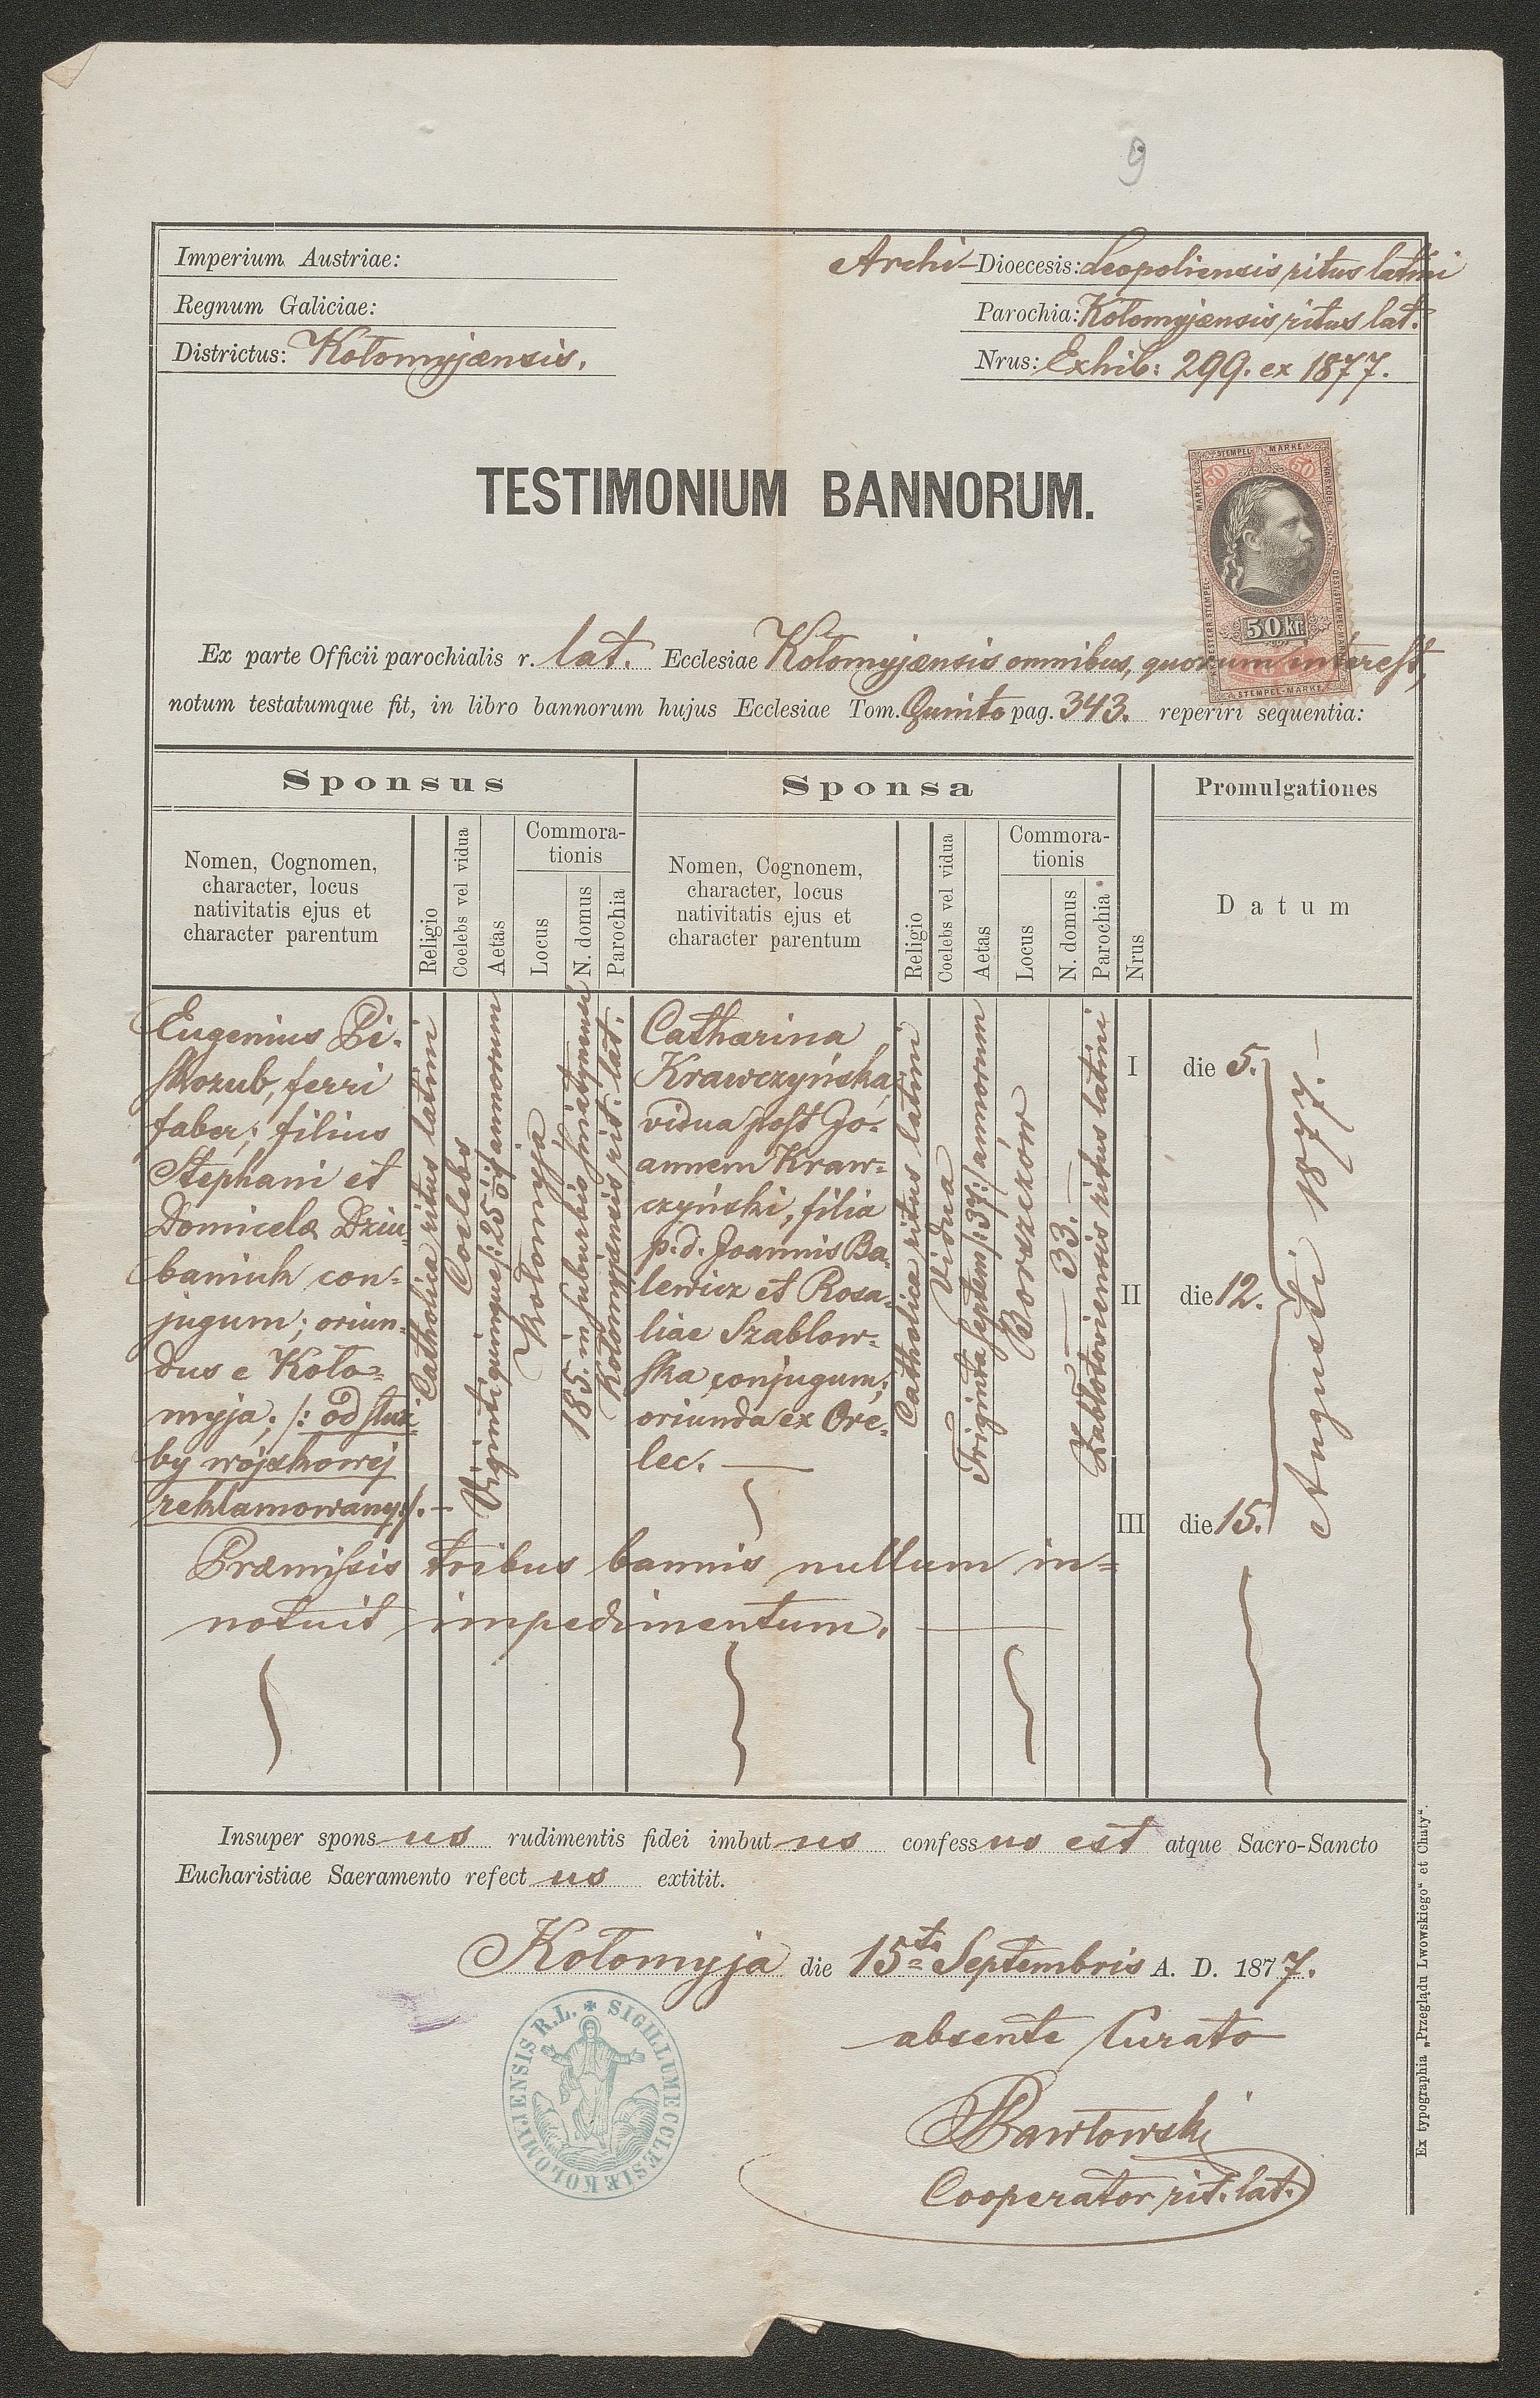 9
Imperium Austriae:
Regnum Galiciae:
Districtus: Kołomyjænsis.
Archi-Dioecesis: Leopoliensis ritus latini
Parochia: Kołomyjænsis ritus lat.
Nrus: Exhib: 299. ex 1877.
TESTIMONIUM BANNORUM.
STEMPEL-MARKE
50 50
50 kr.
STEMPEL-MARKE
Ex parte Officii parochialis r. lat. Ecclesiae Kołomyjænsis omnibus, quorum interest,
notum testatumque fit, in libro bannorum hujus Ecclesiae Tom. Quinto pag. 343. reperiri sequentia:
Sponsus
Nomen, Cognomen,
character, locus
nativitatis ejus et
character parentum
Religio
Coelebs vel vidua
Aetas
Commora-
tionis
Locus
N. domus
Parochia
Sponsa
Nomen, Cognonem,
character, locus
nativitatis ejus et
character parentum
Religio
Coelebs vel vidua
Aetas
Commora-
tionis
Locus
N. domus
Parochia
Nrus
Promulgationes
Datum
Eugenius Pi-
skozub, ferri
faber; filius
Stephani et
Domicelæ Dziu-
baniuk con-
jugum; oriun-
dus e Koło-
myja; /: od służ-
by wojskowej
reklamowany :/. –
Catholica ritus latini
Coelebs
Viginti quinque /: 25 :/ annorum
Kołomyja
185. in suburbio
Kołomyjænsis rit: lat.
Catharina
Krawczyńska,
vidua post Jo-
annem Kraw-
czyński, filia
p. d. Joannis Ba-
lewicz et Rosa-
liae Szablow-
ska conjugum;
oriunda ex Ore-
lec. —
Catholica ritus latini
Vidua
Triginta septem /: 37 :/ annorum
Borszczów
— 33. —
Zabłotoviensis ritus latini
I die 5.
II die 12.
III die 15.
Augusti 1877. –
Præmissis tribus bannis nullum in-
notuit impedimentum. —
Insuper spons us rudimentis fidei imbut us confess us est atque Sacro-Sancto
Eucharistiae Saeramento refect us extitit.
Kołomyja die 15ta Septembris A. D. 1877.
absente Curato
Pawłowski
Cooperator rit. lat.
SIGILLUM ECCLESIÆ KOLOMYJENSIS R.L.
Ex typographia „Przeglądu Lwowskiego“ et Chuty“.